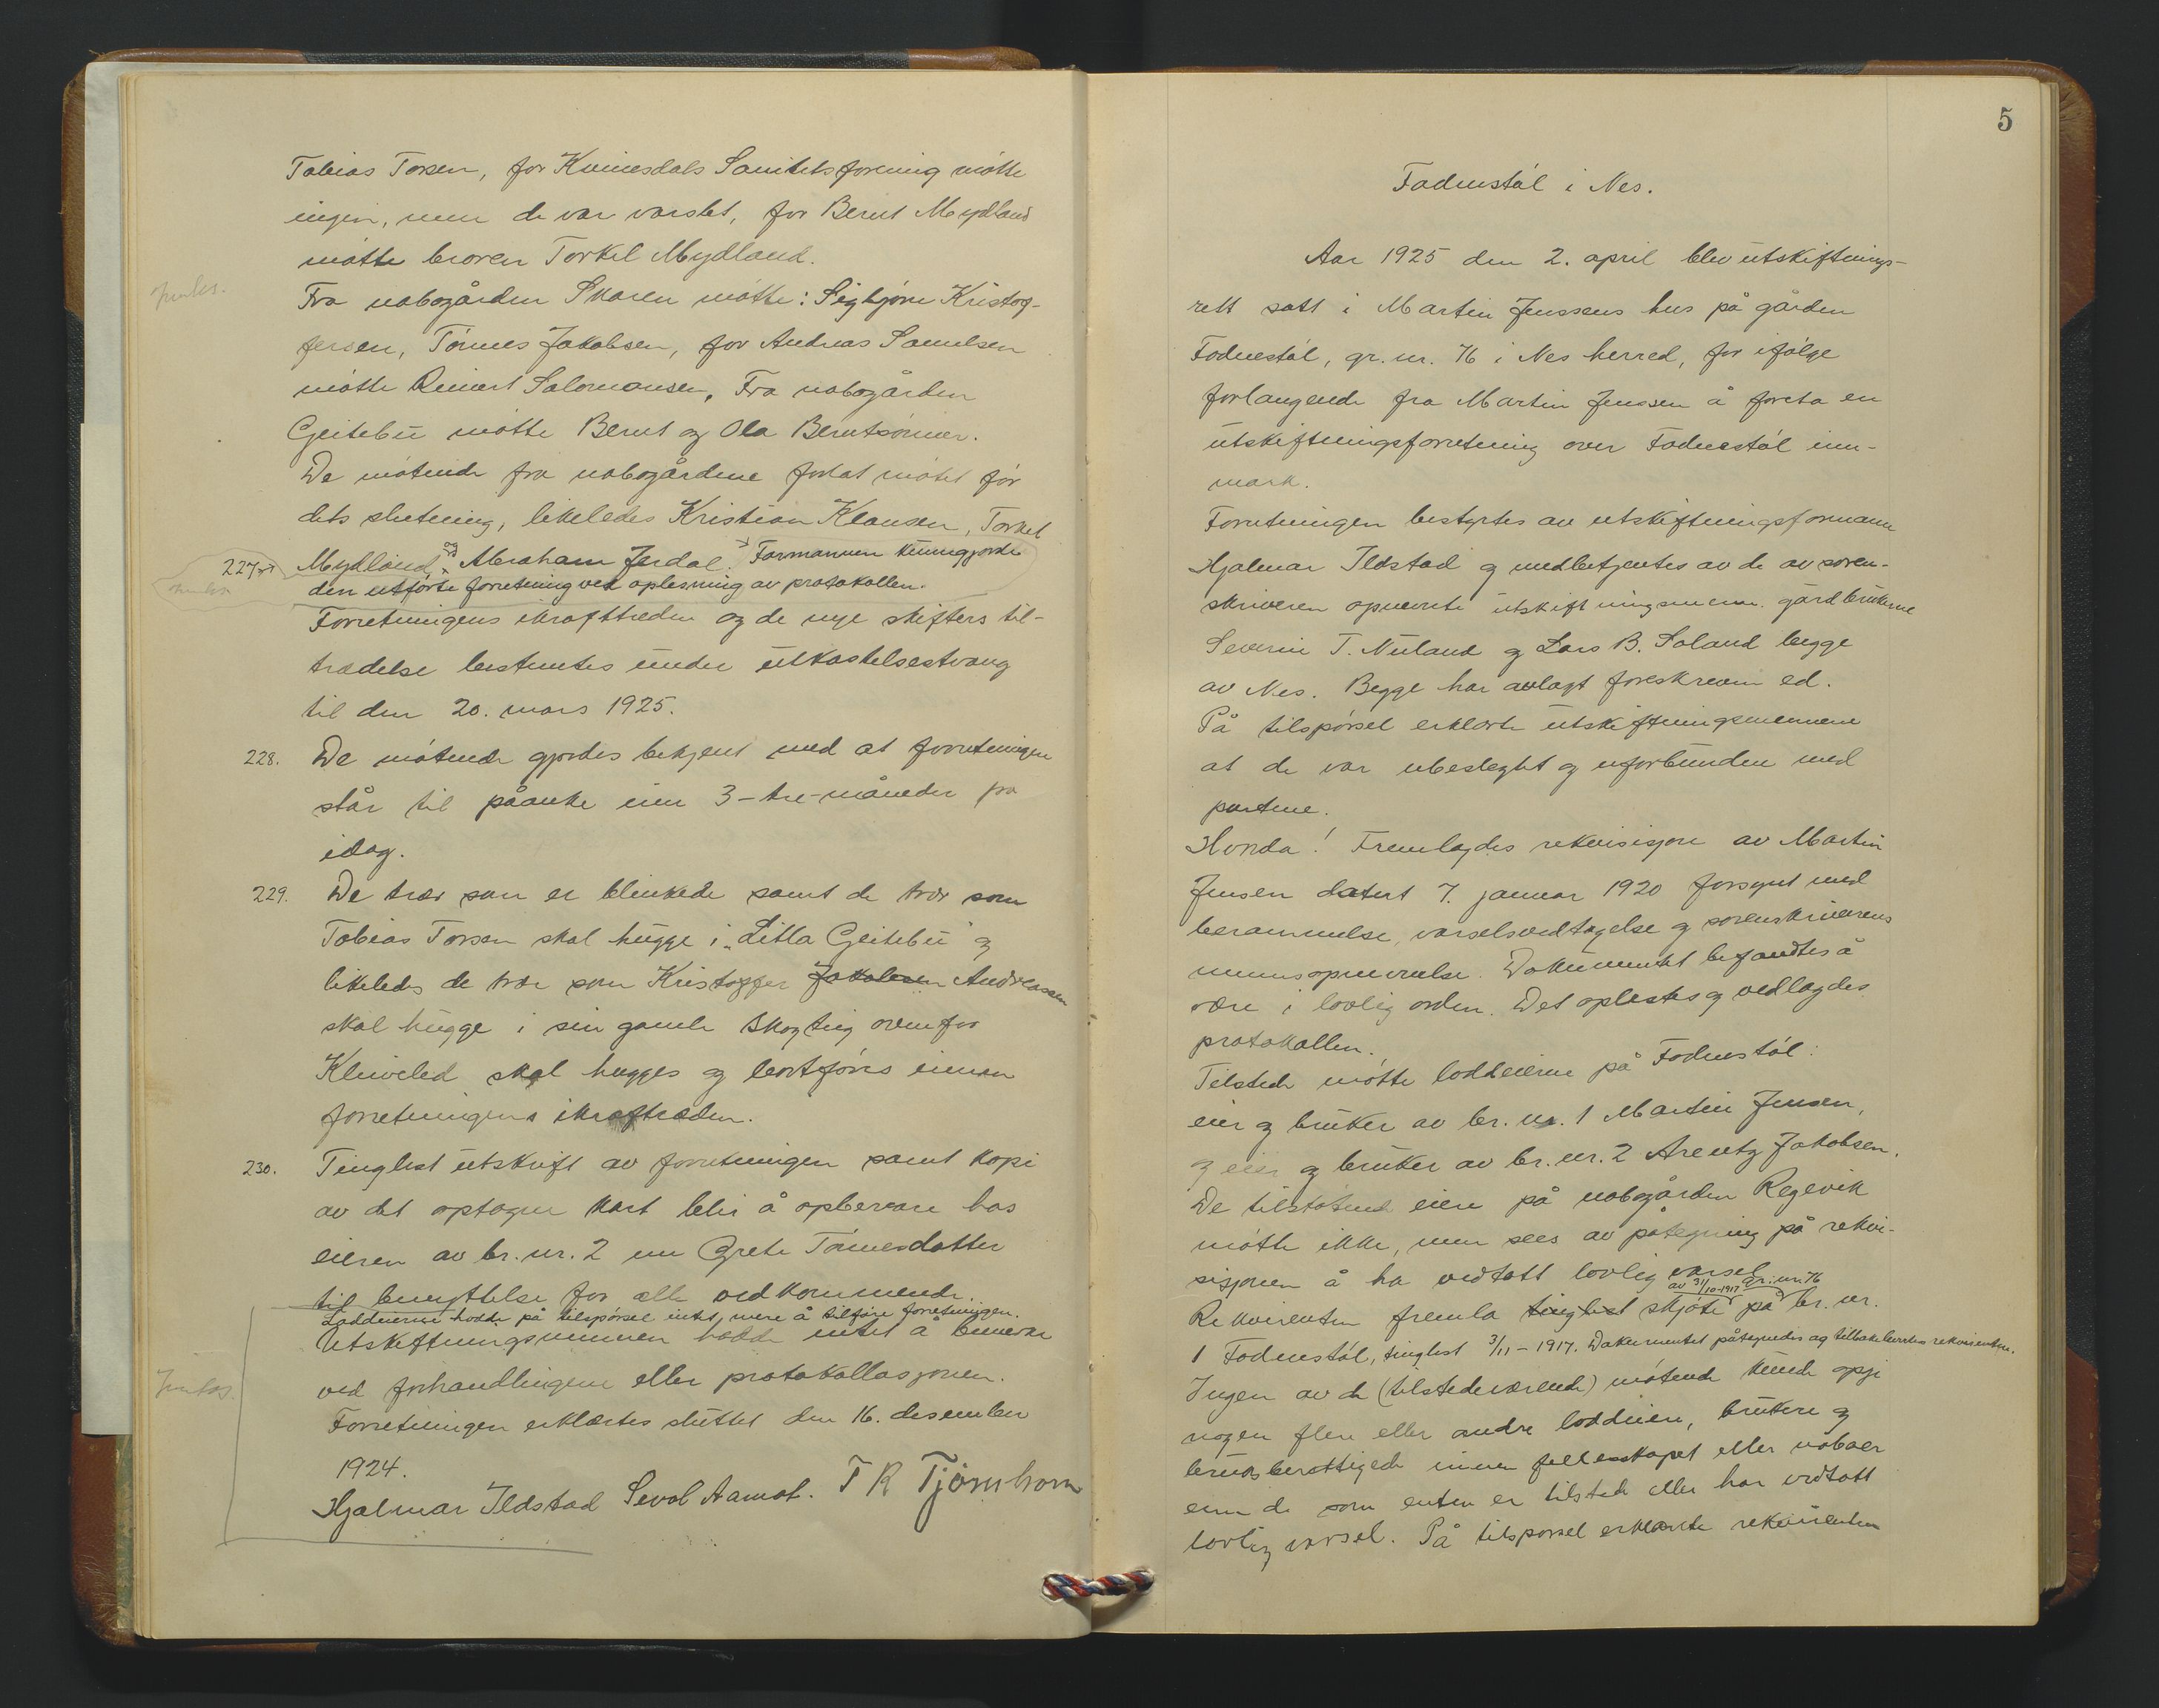 Tobias Torsen, for Kvinesdals Sanitetsforening møtte
ingen, men de var varslet, for Bernt Mydland
møtte broren Torkel Mydland.
Fra nabogården Skaren møtte: Sigbjörn Kristof-
fersen, Tönnes Jakobsen, for Andreas Samuelsen
møtte Reinert Salomonsen. Fra nabogården
Geitebu møtte Bernt og Ola Berntsönner.
De møtende fra nabogårdene forlot møtet før
dets slutning, likeledes Kristian Klausen, Torkel
227. Mydland og Abraham Jerdal. Formannen kunngjorde
den utförte forretning ved oplesning av protokollen.
Forretningens ikrafttreden og de nye skifters til-
trædelse bestemtes under utkastelsestvang
til den 20. mars 1925.
228. De møtende gjordes bekjent med at forretningen
står til påanke inn 3-tre-måneder fra
idag.
229. De trær som er blinkede samt de trær som
Tobias Torsen skal hugge i „Litla Geitebu" og
likeledes de trær som Kristoffer Jakobsen Andreassen
skal hugge i sin gamle skogteig ovenfor
Kleiveled skal hugges og bortføres innen
forretningens ikrafttræden.
230. Tinglest utskrift av forretningen samt kopi
av det optagne kart blir å opbevare hos
eieren av br. nr. 2 nu Grete Tönnesdatter
til benyttelse for alle vedkommende.
Loddeierne hadde på tilspørsel intet mere å tilføre forretningen.
Utskiftningsmennen hadde intet å bemerke
ved forhandlingene eller protokollasjonen.
Forretningen erklærtes sluttet den 16. desember
1924.
Hjalmar Ildstad Sevol Aamot. T R Tjörnhom
5
Fodnestøl i Nes.
Aar 1925 den 2. april blev utskiftnings-
rett satt i Martin Jenssens hus på gården
Fodnestøl, gr. nr. 76 i Nes herred, for ifølge
forlangende fra Martin Jenssen å foreta en
utskiftningsforretning over Fodnestøl inn-
mark.
Forretningen bestyrtes av utskiftningsformann
Hjalmar Ildstad og medbetjentes av de av soren-
skriveren opnevnte utskiftningsmenn. gårdbrukerne
Severin T. Nuland og Lars B. Soland begge
av Nes. Begge har avlagt foreskreven ed.
På tilspørsel erklærte utskiftningsmennene
at de var ubeslegtet og uforbundne med
partene.
Fremlagdes rekvisisjon av Martin
Jensen datert 7. januar 1920 forsynt med
berammelse, varselsvedtagelse og sorenskriverens
mennsopnevnelse. Dokumentet befandtes å
være i lovlig orden. Det oplestes og vedlagdes
protokollen.
Tilstede møtte loddeierne på Fodnestøl:
eier og bruker av br. nr. 1 Martin Jensen,
og eier og bruker av br. nr. 2 Arentz Jakobsen.
De tilstøtende eiere på nabogården Regevik
møtte ikke, men sees av påtegning på rekvi-
sisjonen å ha vedtatt lovlig varsel
av 31/10-1917 gr. nr. 76
Rekvirenten fremla tinglest skjøte på br. nr.
1 Fodnestøl, tinglest 3/11-1917. Dokumentet påtegnedes og tilbakeleverdes rekvirenten.
Ingen av de (tilstedeværende) møtende kunde opgi
nogen flere eller andre loddeiere, brukere og
bruksberettigede innen fellesskapet eller naboer
enn de som enten er tilstede eller har vedtatt
lovlig varsel. På tilspørsel erklærte rekvirenten